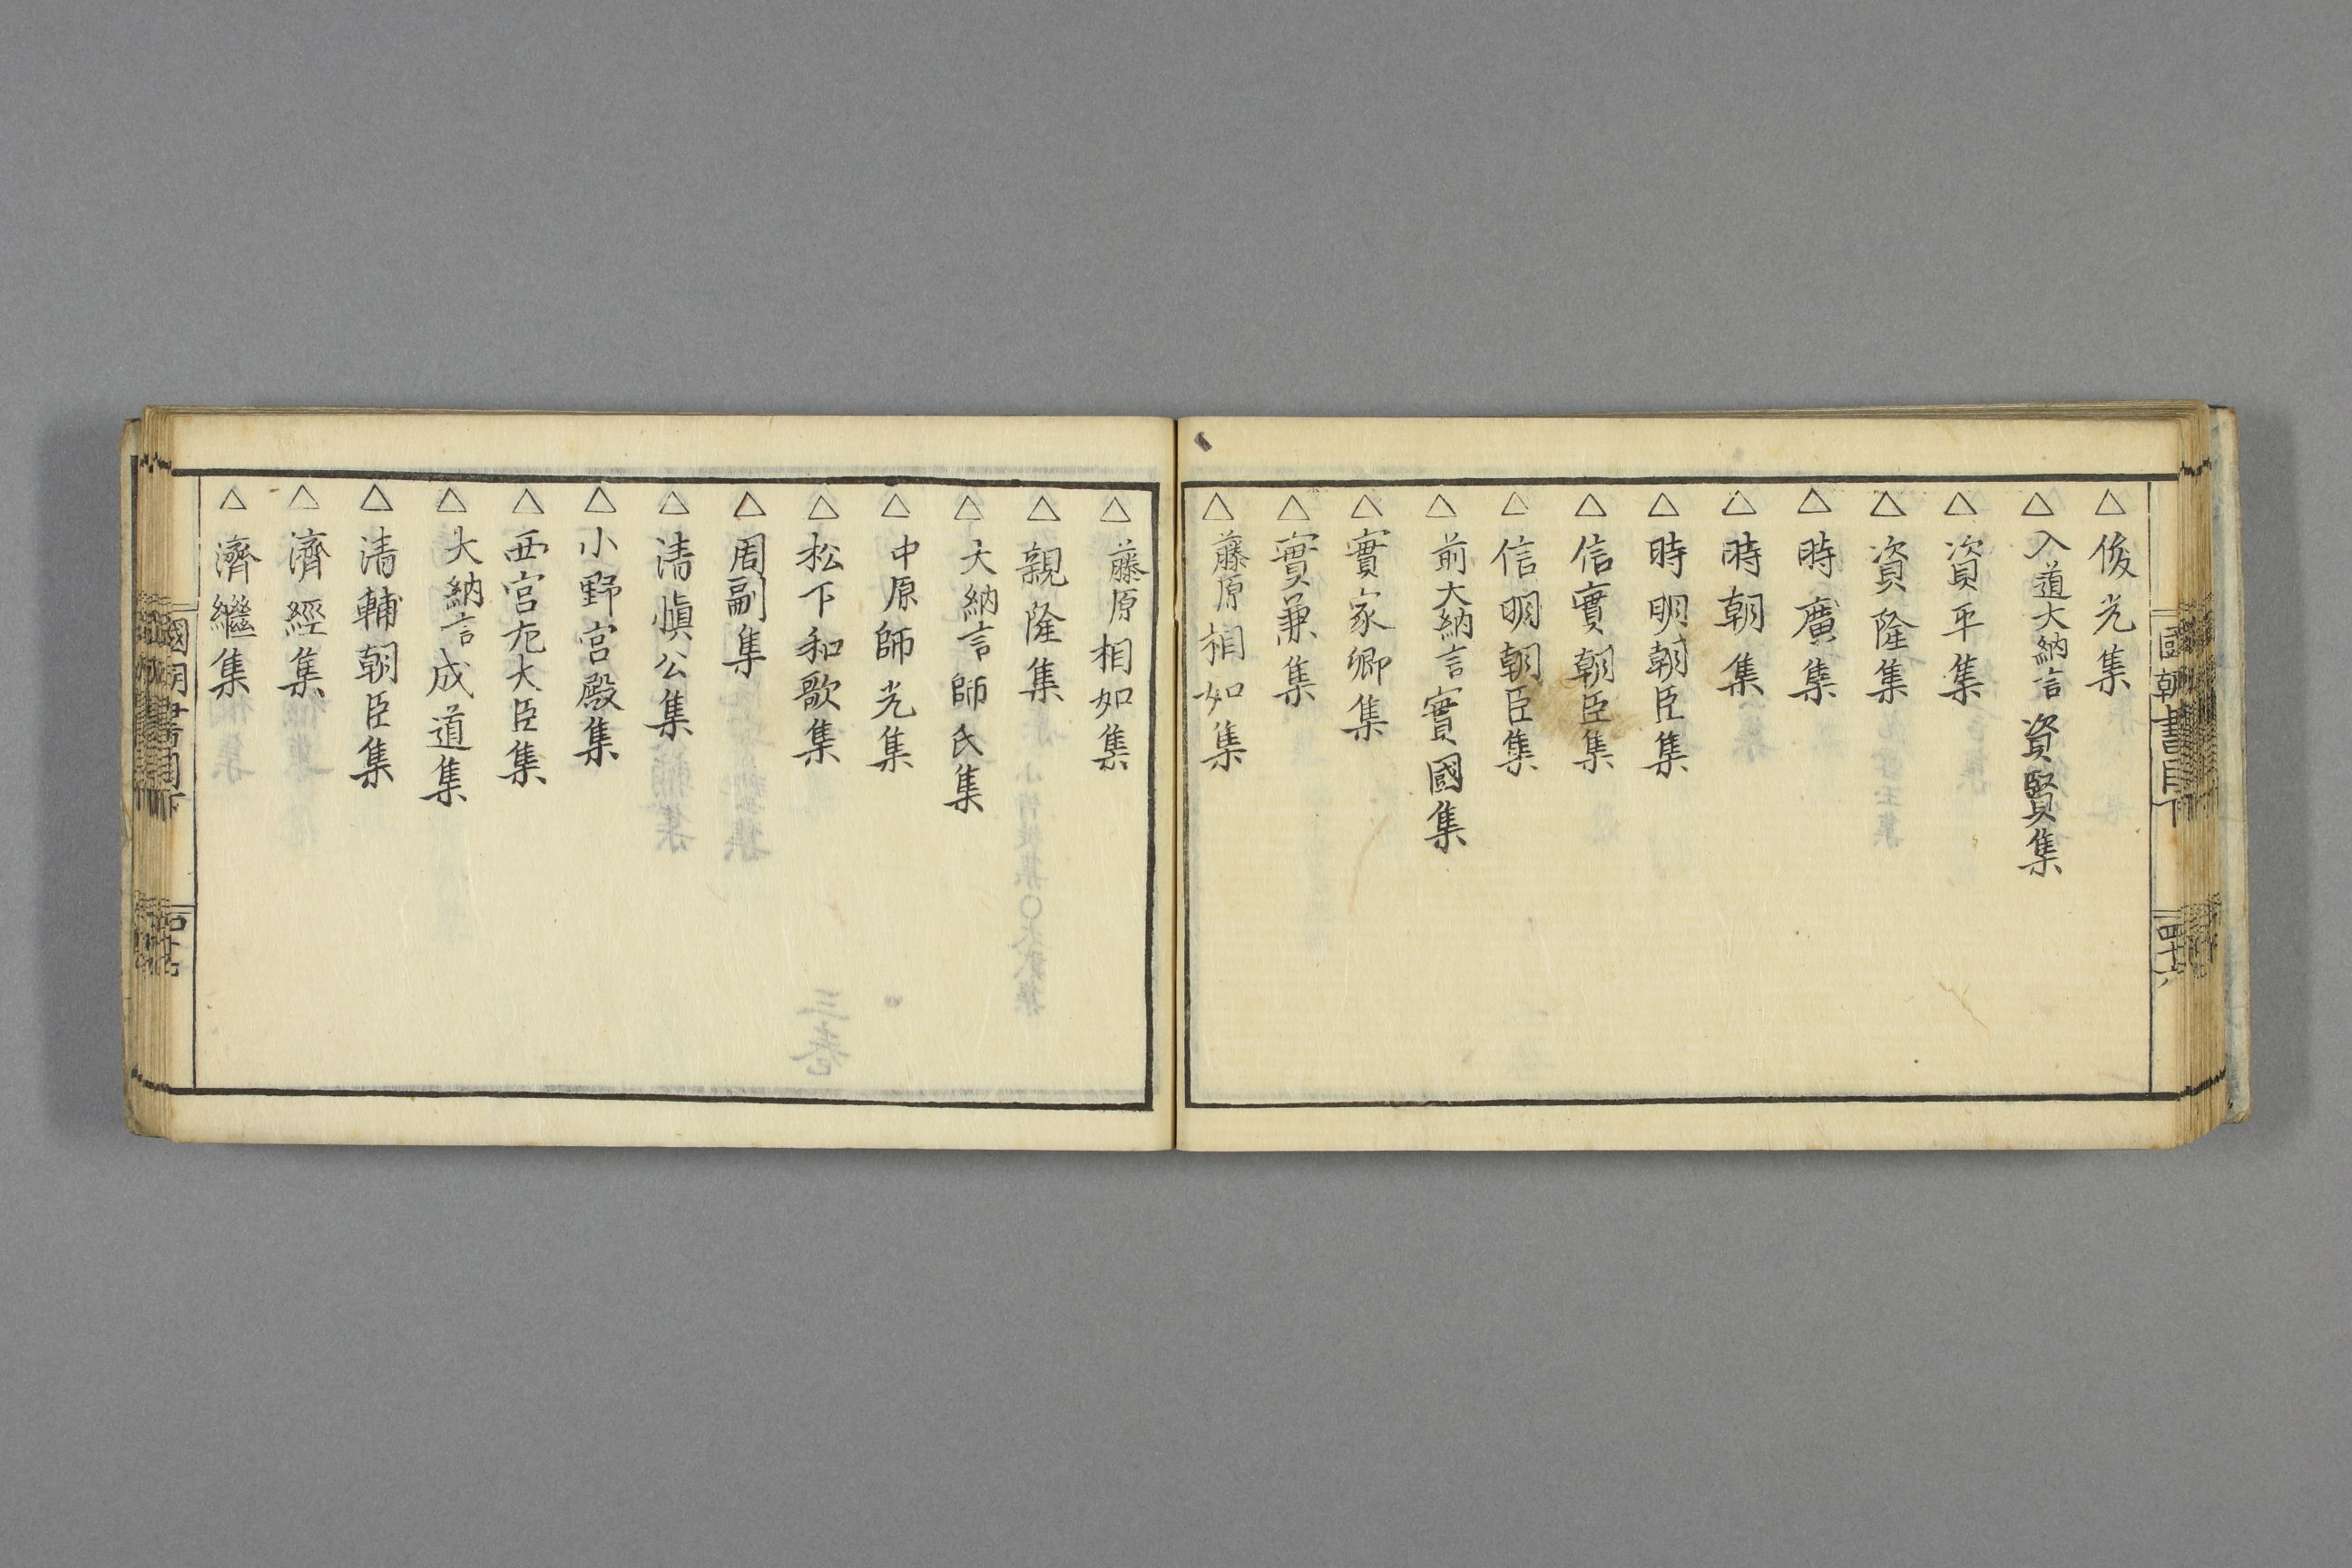 國朝書目下
四十六
△俊光集
△入道大納言資賢集
△資平集
△資隆集
△時廣集
△時朝集
△時明朝臣集
△信實朝臣集
△信明朝臣集
△前大納言實國集
△實家卿集
△實兼集
△藤原相如集
△藤原相如集
△親隆集
△大納言師氏集
△中原師光集
△松下和歌集
△周副集
△清愼公集
△小野宮殿集
△西宮左大臣集
△大納言成道集
△清輔朝臣集
△濟經集
△濟繼集